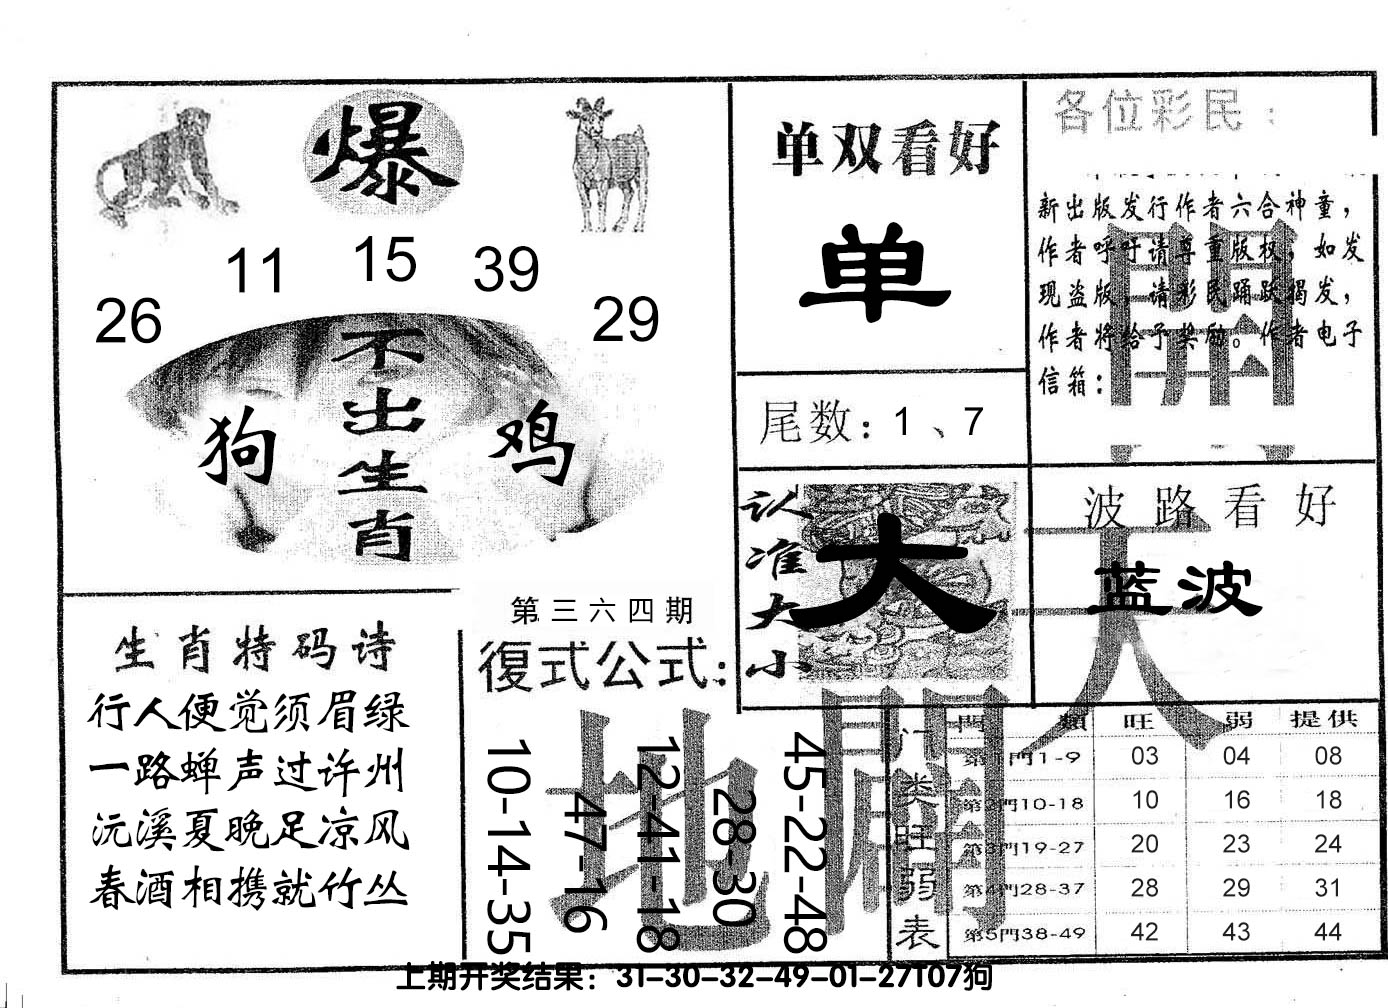 爆
15
11
39
26
29
不出生肖
狗
鸡
单双看好
单
各位彩民：
新出版发行作者六合神童，
作者呼吁请尊重版权，如发
现盗版，请彩民踊跃揭发，
作者将给予奖励。作者电子
信箱：
開
尾数：1、7
认准大小
大
波路看好
蓝波
天
生肖特码诗
行人便觉须眉绿
一路蝉声过许州
沅溪夏晚足凉风
春酒相携就竹丛
第三六四期
復式公式：
地
10-14-35
47-16
12-41-18
28-30
45-22-48
门类旺弱表
門 類 旺 弱 提供
第1門1-9 03 04 08
第2門10-18 10 16 18
第3門19-27 20 23 24
第4門28-37 28 29 31
第5門38-49 42 43 44
上期开奖结果：31-30-32-49-01-27T07狗